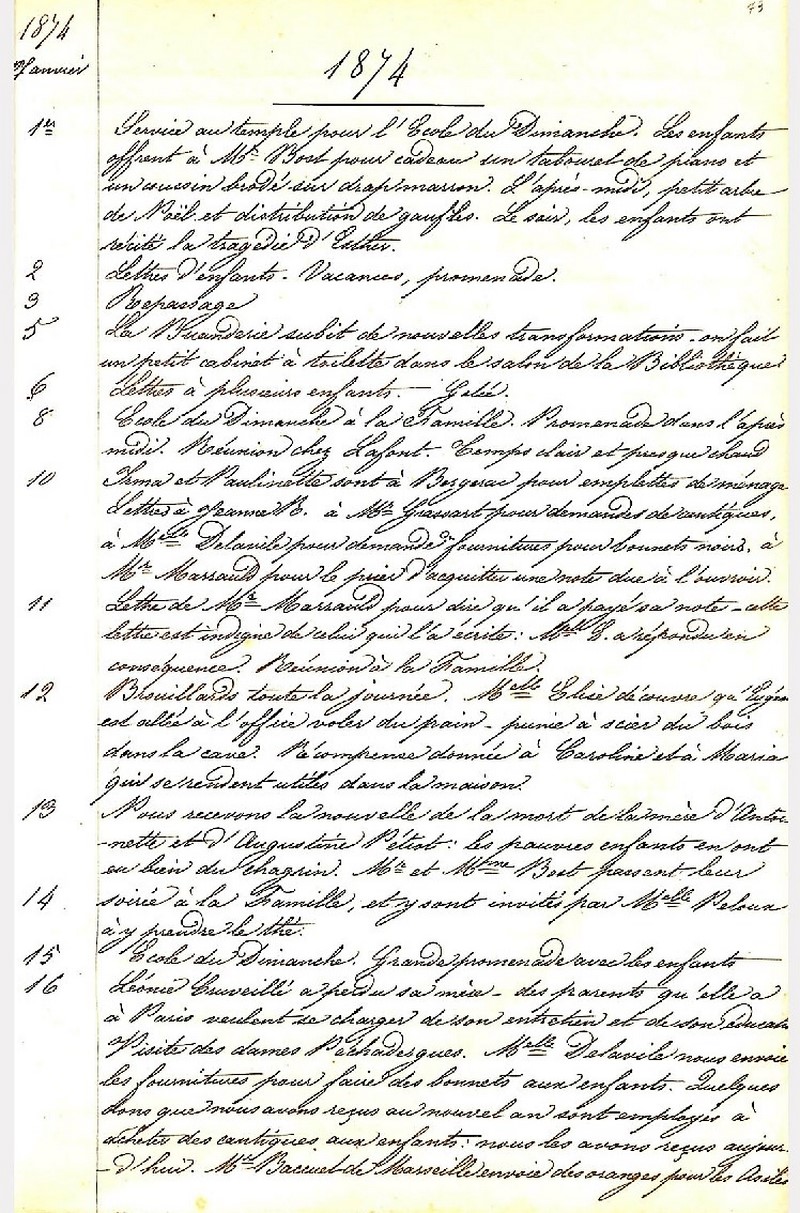 73
1874
Janvier
1874
1er Service au temple pour l'Ecole du Dimanche. Les enfants
offrent à Mr Bost pour cadeau un tabouret de piano et
un coussin brodé sur drap marron. L'après-midi, petit arbre
de Noël et distribution de gauffres. Le soir, les enfants ont
récité la tragédie d'Esther.
2 Lettres d'enfants - Vacances, promenade.
3 Repassage
5 La Buanderie subit de nouvelles transformations - on fait
un petit cabinet à toilette dans le salon de la Bibliothèque
6 Lettres à plusieurs enfants. - Gelée.
8 Ecole du Dimanche à la Famille. Promenade dans l'après
midi. Réunion chez Lafont. Temps clair et presque chaud
10 Irma et Paulinette sont à Bergerac pour emplettes de ménage
Lettres à Jeanne R. à Mr Grassart pour demandes de cantiques,
à Melle Delavile pour demande fournitures pour bonnets noirs, à
Mr Marrauld pour le prier d'acquitter une note due à l'ouvroir.
11 Lettre de Mr Marrauld pour dire qu'il a payé sa note - cette
lettre est indigne de celui qui l'a écrite : Melle L. a répondu en
conséquence. Réunion à la Famille.
12 Brouillards toute la journée. Melle Elise découvre qu'
est allée à l'office voler du pain - punie à scier du bois
dans la cave. Récompense donnée à Caroline et à Maria
qui se rendent utiles dans la maison.
13 Nous recevons la nouvelle de la mort de la mère d'Antoi-
-nette et d'Augustine Petiot : les pauvres enfants en ont
eu bien du chagrin. Mr et Mme Bost passent leur
14 soirée à la Famille, et y sont invités par Melle Peloux
à y prendre le thé.
15 Ecole du Dimanche. Grande promenade avec les enfants
16 Léonie Cruveillé a perdu sa mère - des parents qu'elle a
à Paris veulent se charger de son entretien et de son éducati
Visite des dames. Melle Delavile nous envoie
les fournitures pour faire des bonnets aux enfants. Quelques
dons que nous avons reçus au nouvel an sont employés à
acheter des cantiques aux enfants : nous les avons reçus aujour-
-d'hui. Mr Baccuet de Marseille envoie des oranges pour les Asiles